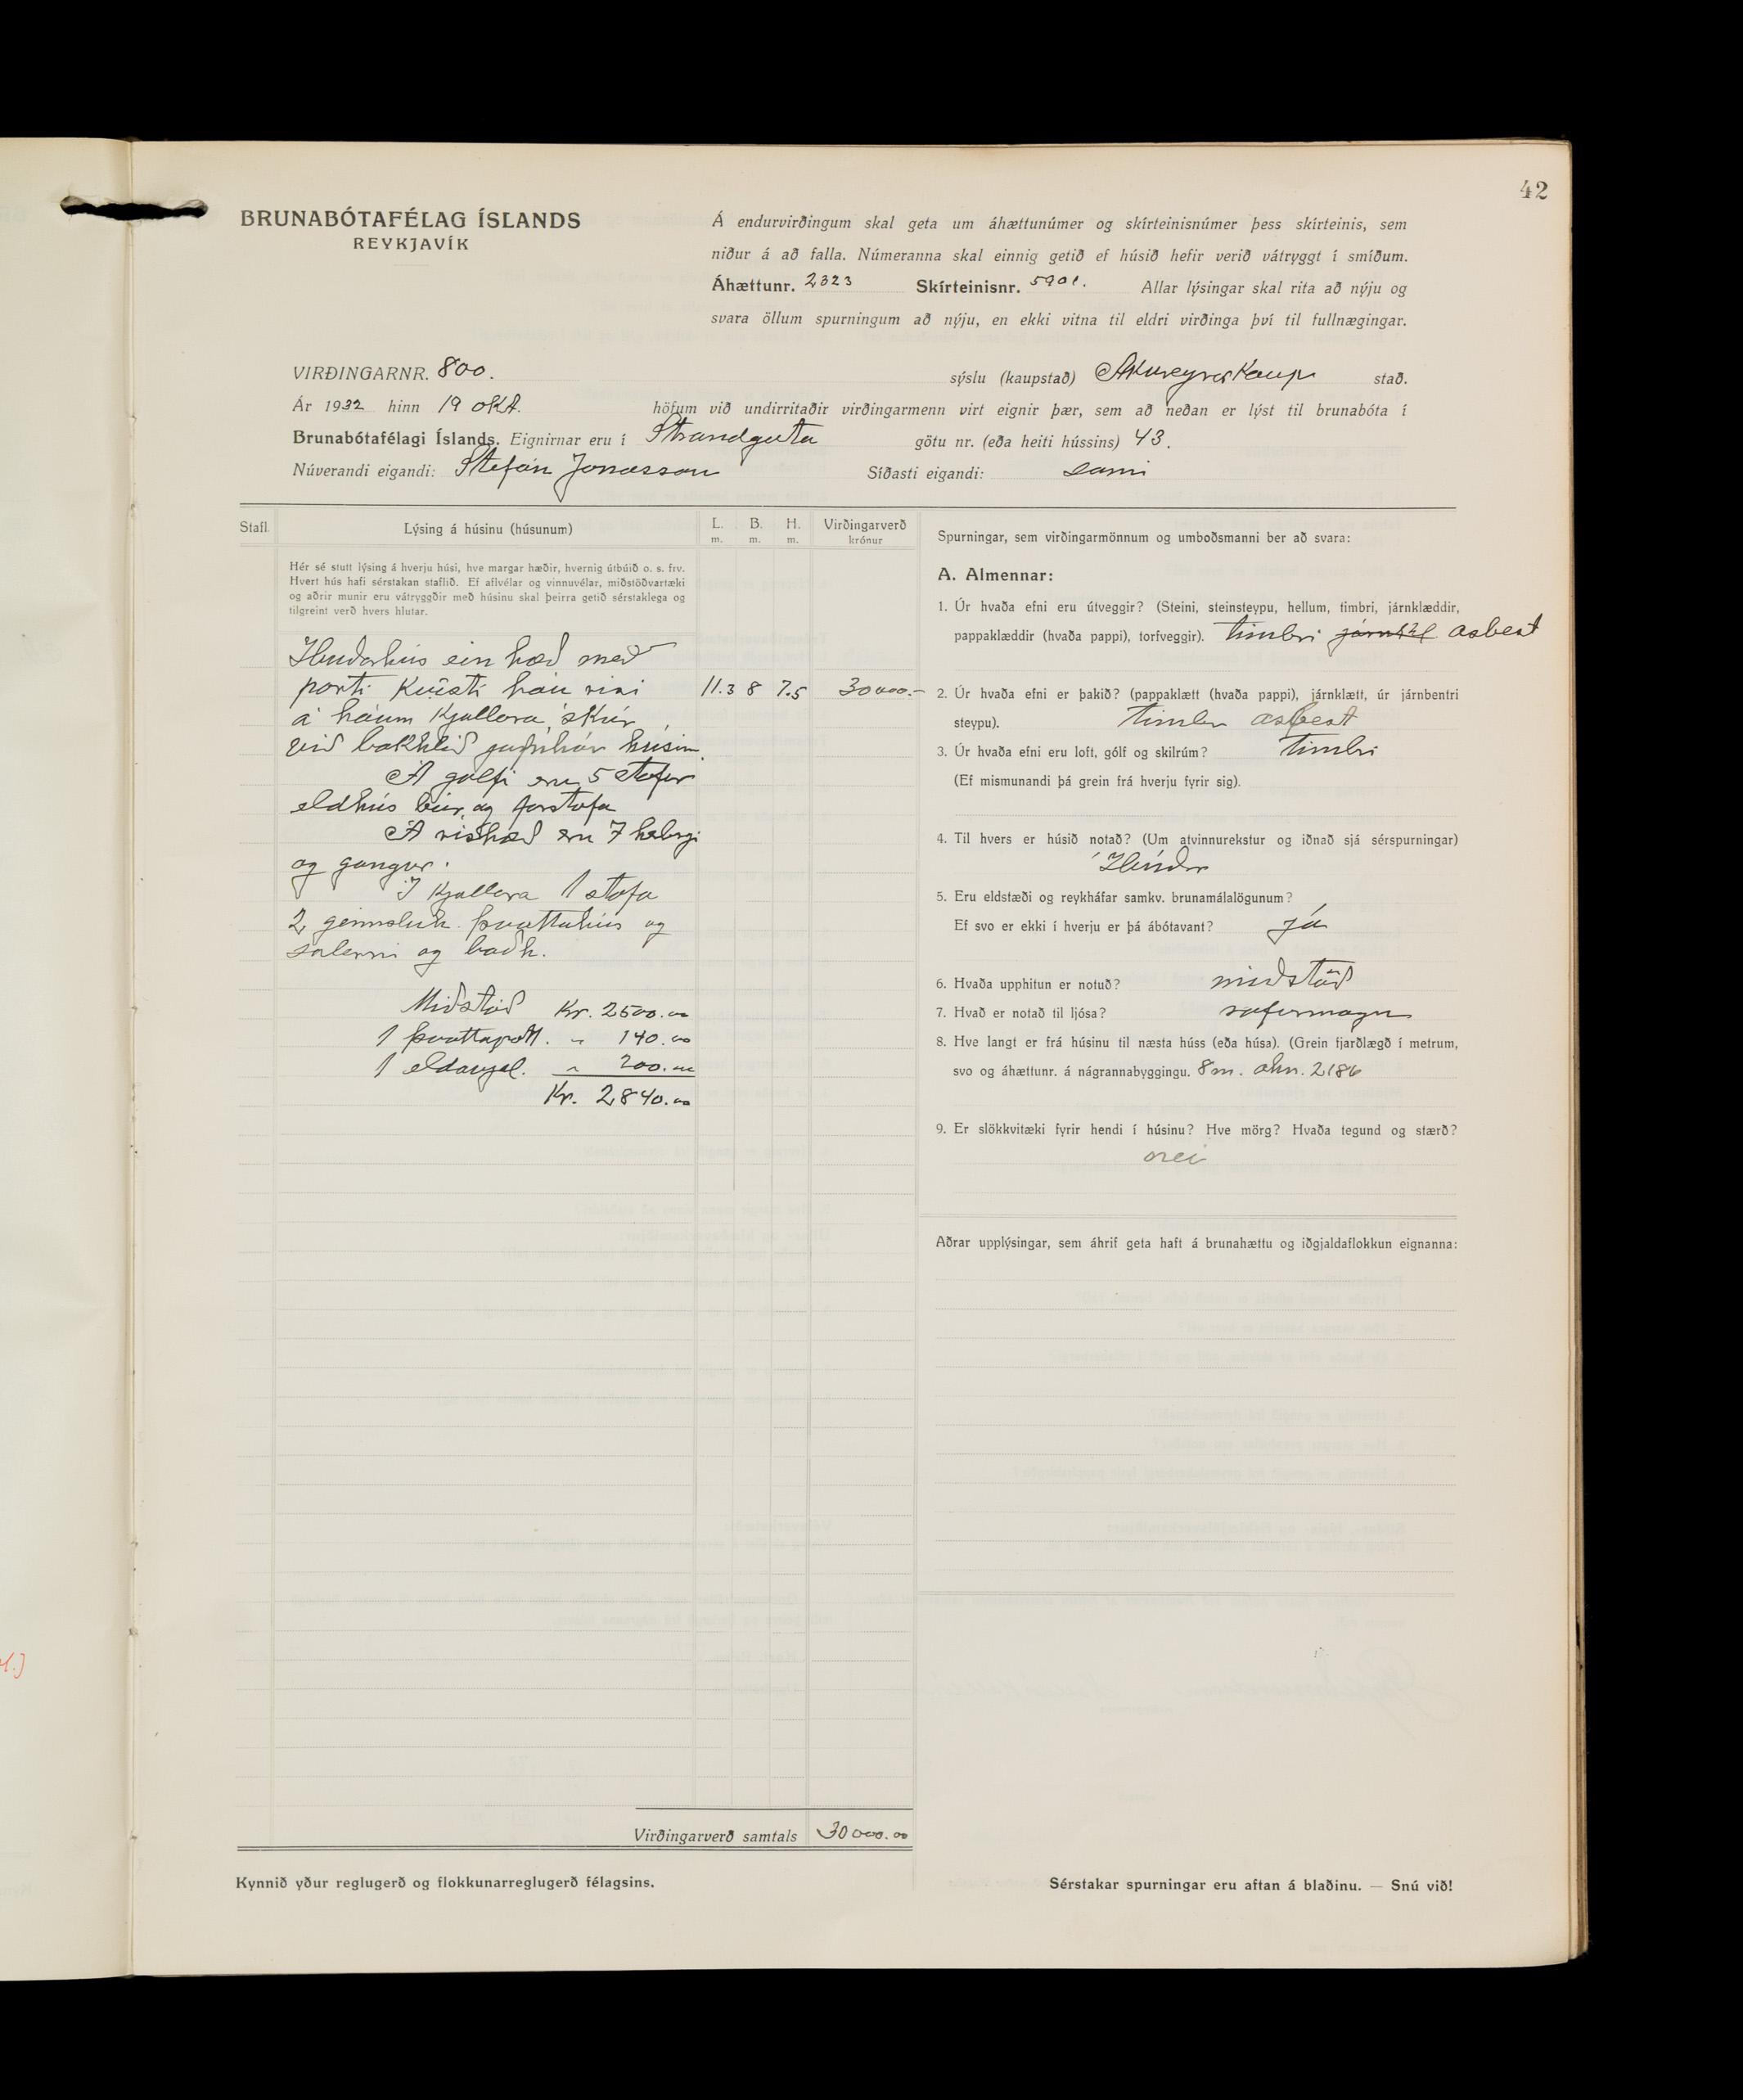 42
BRUNABÓTAFÉLAG ÍSLANDS
REYKJAVÍK
Á endurvirðingum skal geta um áhættunúmer og skírteinisnúmer þess skírteinis, sem
niður á að falla. Númeranna skal einnig getið ef húsið hefir verið vátryggt í smíðum.
Áhættunr. 2323 Skírteinisnr. 5901. Allar lýsingar skal rita að nýju og
svara öllum spurningum að nýju, en ekki vitna til eldri virðinga því til fullnægingar.
VIRÐINGARNR. 800. sýslu (kaupstað) Akureyrar Kaup stað.
Ár 1932 hinn 19 okt. höfum við undirritaðir virðingarmenn virt eignir þær, sem að neðan er lýst til brunabóta í
Brunabótafélagi Íslands. Eignirnar eru í Strandgata götu nr. (eða heiti hússins) 43.
Núverandi eigandi: Stefán Jónasson Síðasti eigandi: sami
Stafl. Lýsing á húsinu (húsunum) L. m. B. m. H. m. Virðingarverð krónur
Hér sé stutt lýsing á hverju húsi, hve margar hæðir, hvernig útbúið o. s. frv.
Hvert hús hafi sérstakan staflið. Ef aflvélar og vinnuvélar, miðstöðvartæki
og aðrir munir eru vátryggðir með húsinu skal þeirra getið sérstaklega og
tilgreint verð hvers hlutar.
Íbúðarhús ein hæð með
porti kvisti háu risi 11.3 8 7.5 30000.-
á háum kjallara, skúr
við bakhlið jafnhár húsin.
Á gólfi eru 5 stofur
eldhús búr og forstofa
Á rishæð eru 7 herbergi
og gangur.
Í kjallara 1 stofa
2 geimsluh. þvottahús og
salerni og baðh.
Miðstöð Kr. 2500.00
1 þvottapott. " 140.00
1 eldavjel. " 200.00
Kr. 2840.00
Virðingarverð samtals 30000.00
Kynnið yður reglugerð og flokkunarreglugerð félagsins.
Spurningar, sem virðingarmönnum og umboðsmanni ber að svara:
A. Almennar:
1. Úr hvaða efni eru útveggir? (Steini, steinsteypu, hellum, timbri, járnklæddir,
pappaklæddir (hvaða pappi), torfveggir). timbri járnkl asbest
2. Úr hvaða efni er þakið? (pappaklætt (hvaða pappi), járnklætt, úr járnbentri
steypu). timbur asbest
3. Úr hvaða efni eru loft, gólf og skilrúm? timbri
(Ef mismunandi þá grein frá hverju fyrir sig).
4. Til hvers er húsið notað? (Um atvinnurekstur og iðnað sjá sérspurningar)
Íbúðar
5. Eru eldstæði og reykháfar samkv. brunamálalögunum?
Ef svo er ekki í hverju er þá ábótavant? já
6. Hvaða upphitun er notuð? miðstöð
7. Hvað er notað til ljósa? rafurmagn
8. Hve langt er frá húsinu til næsta húss (eða húsa). (Grein fjarðlægð í metrum,
svo og áhættunr. á nágrannabyggingu. 8 m. ahn. 2186
9. Er slökkvitæki fyrir hendi í húsinu? Hve mörg? Hvaða tegund og stærð?
nei
Aðrar upplýsingar, sem áhrif geta haft á brunahættu og iðgjaldaflokkun eignanna:
Sérstakar spurningar eru aftan á blaðinu. — Snú við!